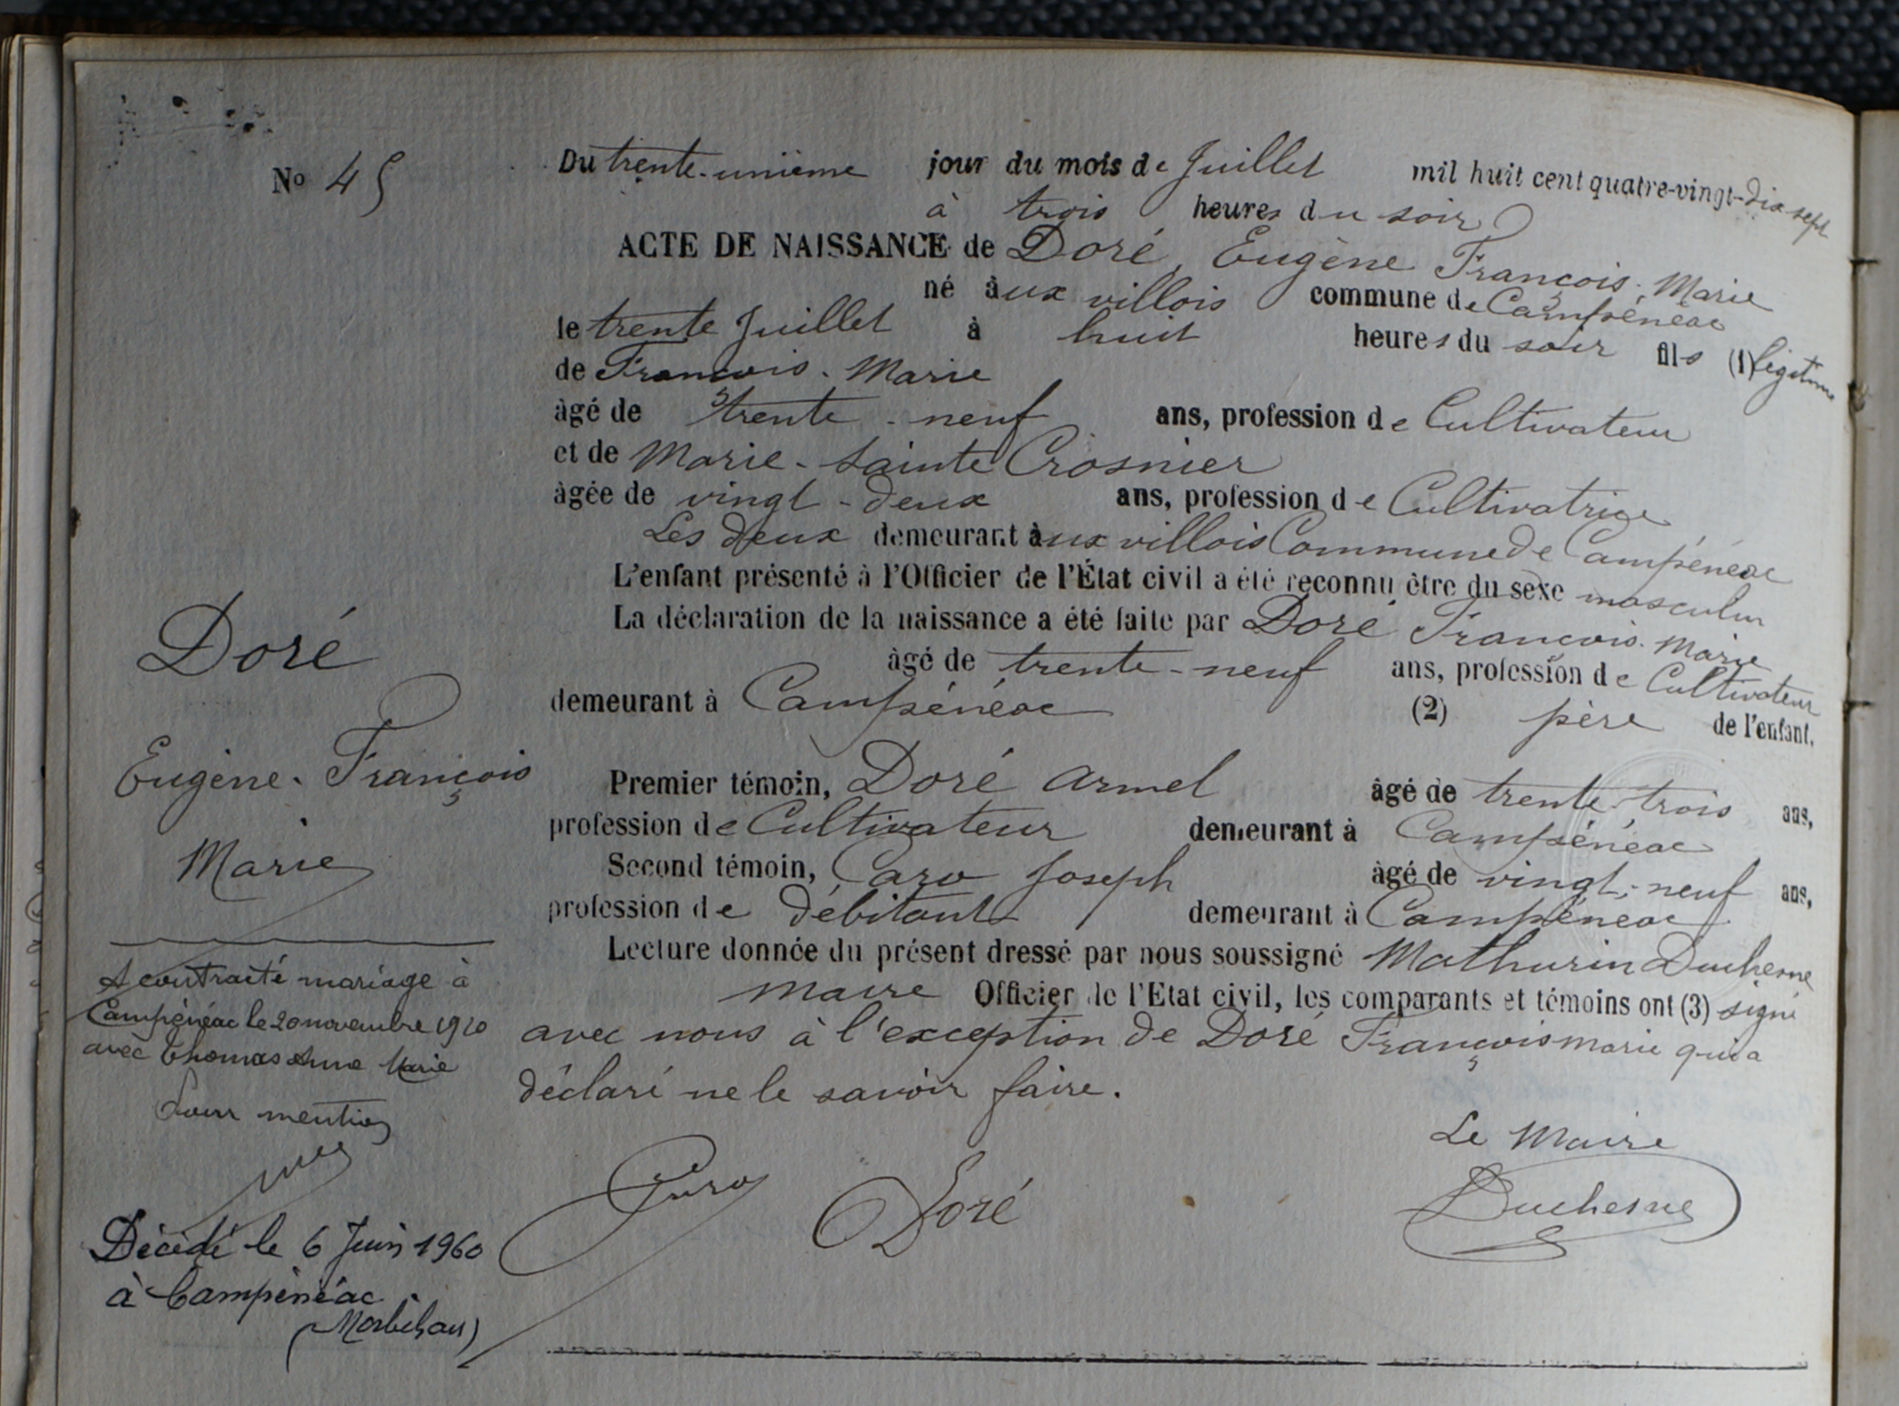 Nº 45
Du trente-unième jour du mois de Juillet mil huit cent quatre-vingt-dix sept
à trois heures du soir
ACTE DE NAISSANCE de Doré, Eugène François-Marie
né aux villois commune de Campénéac
le trente Juillet à huit heures du soir fils (1) légitime
de François-Marie
âgé de trente-neuf ans, profession de Cultivateur
et de Marie-Sainte Crosnier
âgée de vingt-deux ans, profession de Cultivatrice
Les deux demeurant aux villois Commune de Campénéac
L'enfant présenté à l'Officier de l'État civil a été reconnu être du sexe masculin
La déclaration de la naissance a été faite par Doré François-Marie
âgé de trente-neuf ans, profession de Cultivateur
demeurant à Campénéac (2) père de l'enfant.
Premier témoin, Doré Armel âgé de trente-trois ans,
profession de Cultivateur demeurant à Campénéac
Second témoin, Caro Joseph âgé de vingt-neuf ans,
profession de débitant demeurant à Campénéac
Lecture donnée du présent dressé par nous soussigné Mathurin Duchesne
maire Officier de l'Etat civil, les comparants et témoins ont (3) signé
avec nous à l'exception de Doré François marie qui a
déclaré ne le savoir faire.
Le Maire
Caro Doré Duchesne
Doré
Eugène-François
Marie
A contracté mariage à
Campénéac le 20 novembre 1920
avec Thomas Anne Marie
Pour mention
Décédé le 6 Juin 1960
à Campénéac
(Morbihan)